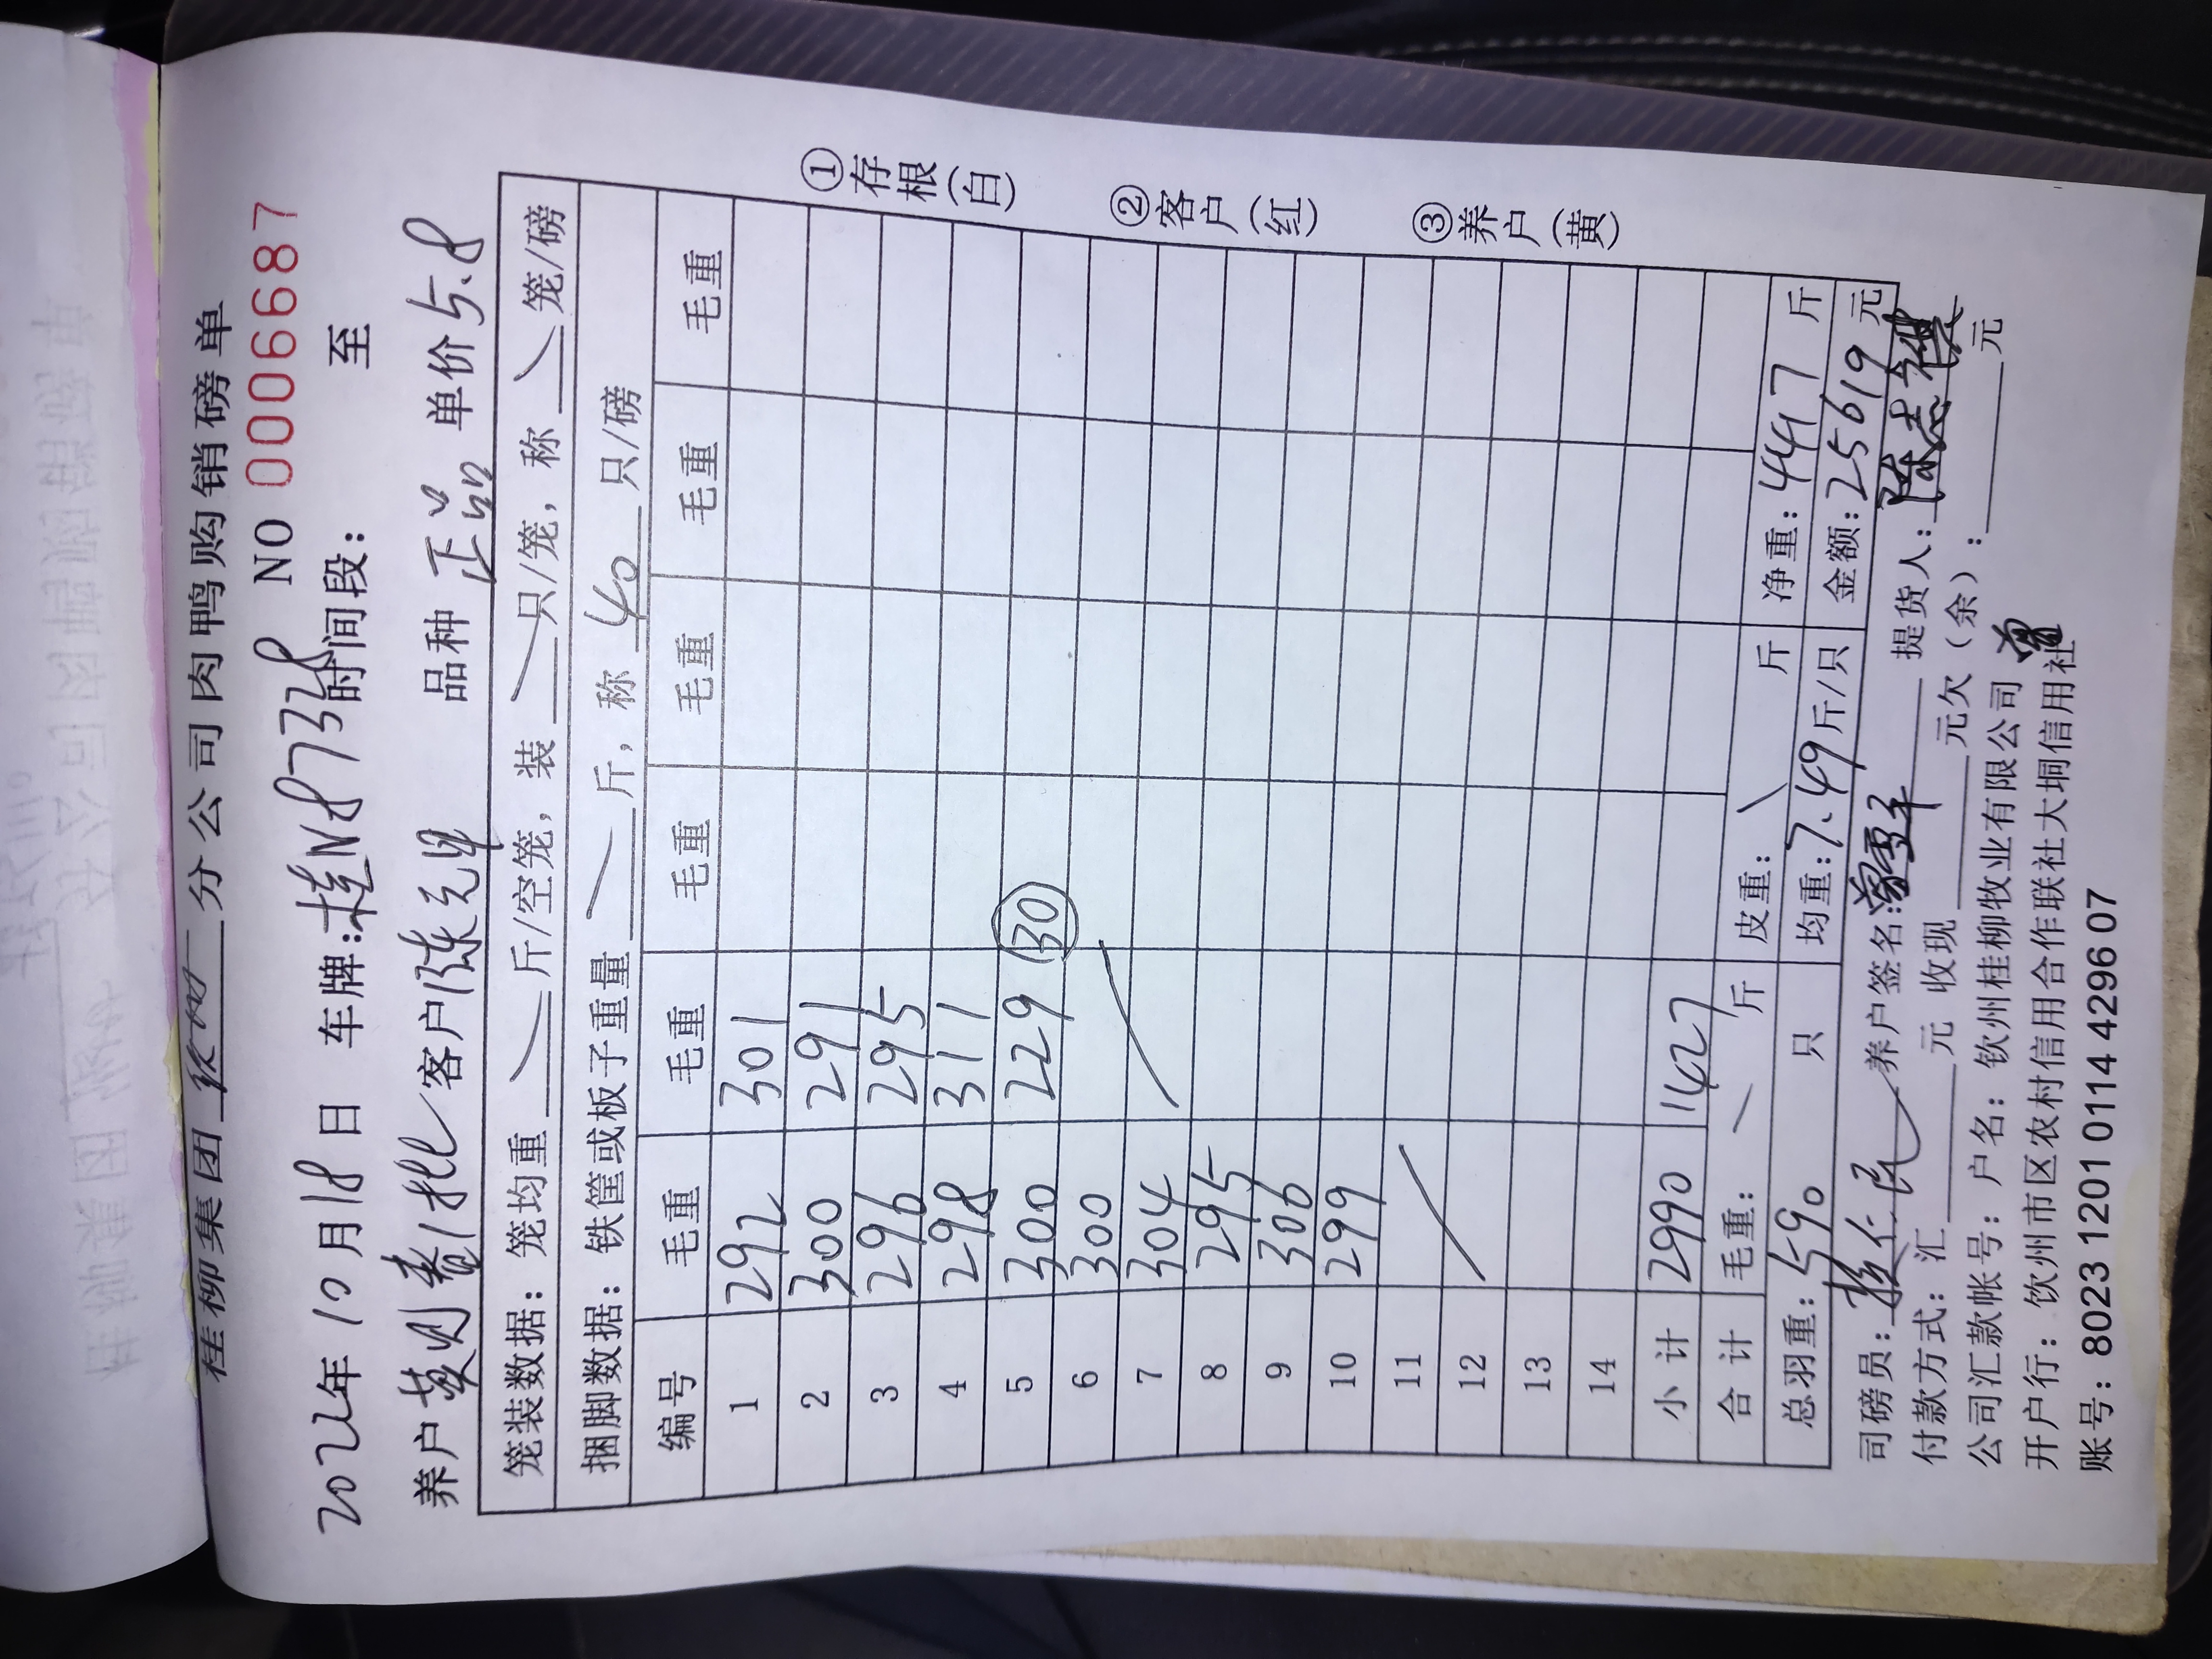 桂柳集团 钦州 分公司肉鸭购销磅单
NO 0006687
2022年10月18日 车牌:桂N87328 时间段: 至
养户 黄则春1批 客户 陈元 品种 正品 单价 5.8
笼装数据: 笼均重 斤/空笼, 装 只/笼, 称 笼/磅
捆脚数据: 铁筐或板子重量 斤, 称 40 只/磅
编号 毛重 毛重 毛重 毛重 毛重 毛重
1 292 301
2 300 291
3 296 295
4 298 311
5 300 229 (30)
6 300
7 304
8 295
9 306
10 299
11
12
13
14
小计 2990 1427
合计 毛重: 斤 皮重: 斤 净重: 4417 斤
总羽重: 590 只 均重: 7.49 斤/只 金额: 25619 元
司磅员: 养户签名: 提货人: 陈志
付款方式: 汇 元 收现 元欠(余): 元
公司汇款帐号: 户名: 钦州桂柳牧业有限公司
开户行: 钦州市区农村信用合作联社大垌信用社
账号: 8023 1201 0114 4296 07
①存根(白)
②客户(红)
③养户(黄)